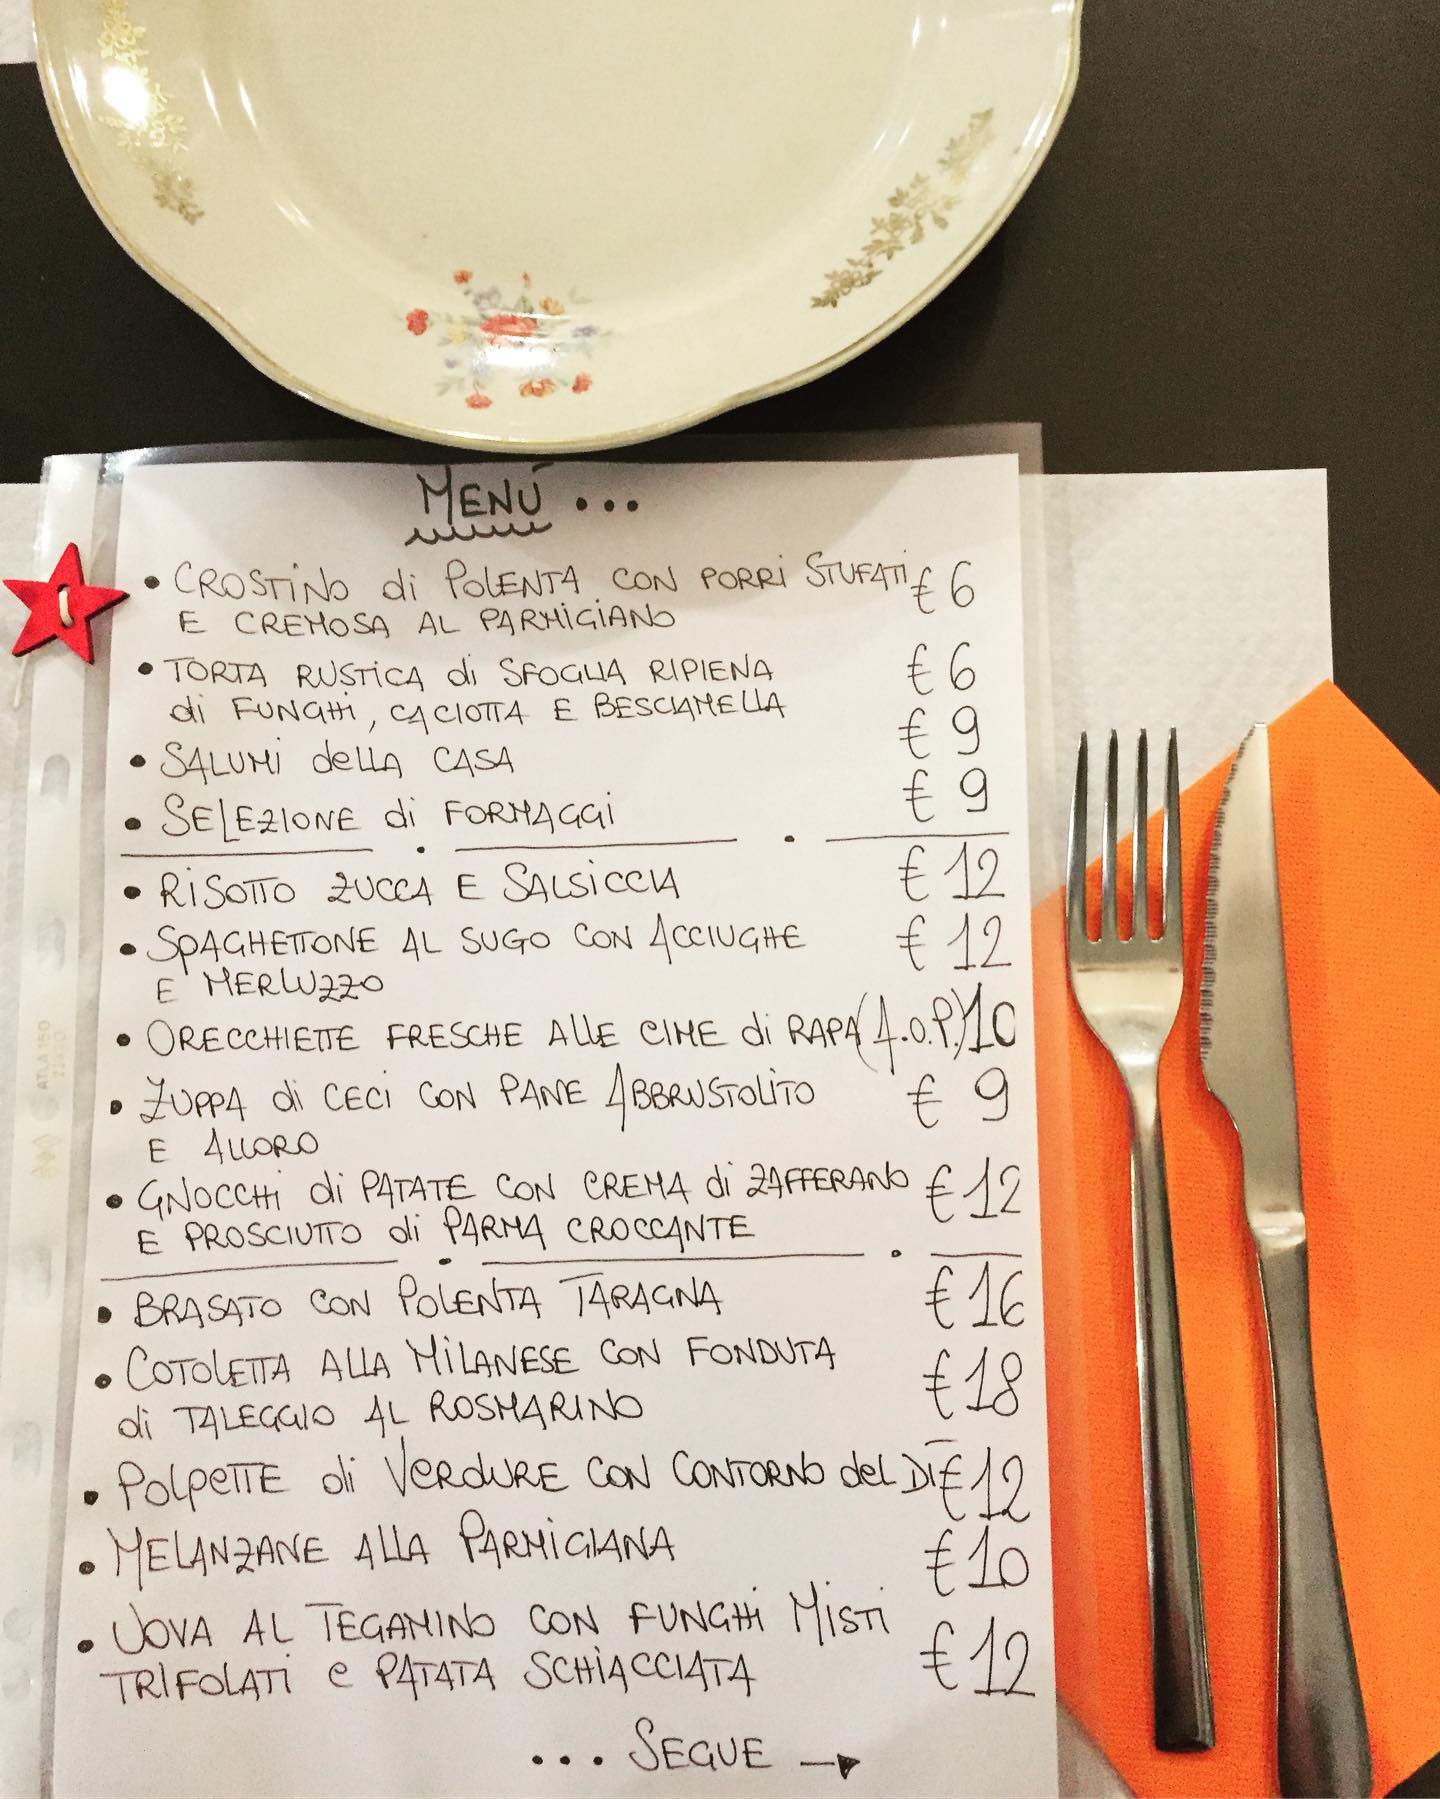 MENÚ ...
• CROSTINO di POLENTA CON PORRI STUFATI € 6
E CREMOSA AL PARMIGIANO
• TORTA RUSTICA di SFOGLIA RIPIENA € 6
di FUNGHI, CACIOTTA E BESCIAMELLA
• SALUMI della CASA € 9
• SELEZIONE di FORMAGGI € 9
• RISOTTO ZUCCA E SALSICCIA € 12
• SPAGHETTONE AL SUGO CON ACCIUGHE € 12
E MERLUZZO
• ORECCHIETTE FRESCHE ALLE CIME di RAPA (A.O.P.) 10
• ZUPPA di CECI CON PANE ABBRUSTOLITO € 9
E ALLORO
• GNOCCHI di PATATE CON CREMA di ZAFFERANO € 12
E PROSCIUTTO di PARMA CROCCANTE
• BRASATO CON POLENTA TARAGNA € 16
• COTOLETTA ALLA MILANESE CON FONDUTA € 18
di TALEGGIO AL ROSMARINO
• POLPETTE di VERDURE CON CONTORNO del DÌ € 12
• MELANZANE ALLA PARMIGIANA € 10
• UOVA AL TEGAMINO CON FUNGHI MISTI € 12
TRIFOLATI e PATATA SCHIACCIATA
... SEGUE →